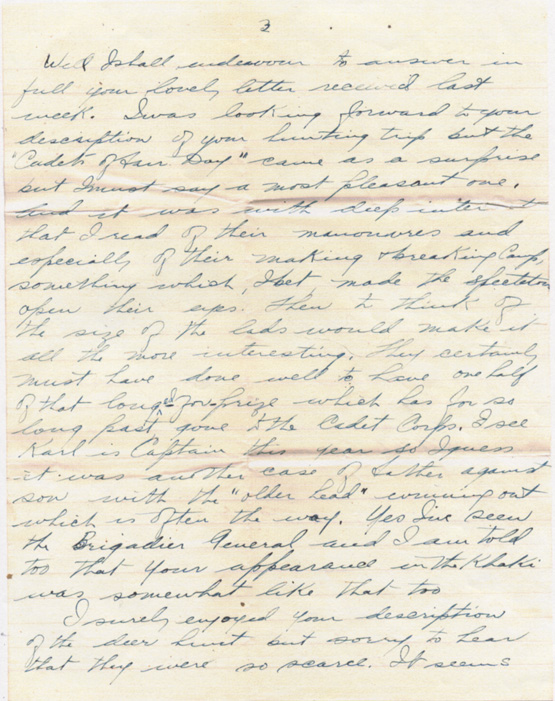 3
Well I shall endeavour to answer in
full your lovely letter received last
week. I was looking forward to your
description of your hunting trip but the
"Cadets of Fair Day" came as a surprise
but I must say a most pleasant one.
And it was with deep interest
that I read of their manouvres and
especially of their making & breaking Camp,
something which, I bet, made the spectators
open their eyes. Then to think of
the size of the lads would make it
all the more interesting. They certainly
must have done well to have one half
of that longed for prize which has for so
long past gone to the Cadet Corps. I see
Karl is Captain this year so I guess
it was another case of father against
son with the "older head" winning out
which is often the way. Yes I've seen
the Brigadier General and I am told
too that your appearance in the Khaki
was somewhat like that too
I surely enjoyed your description
of the deer hunt but sorry to hear
that they were so scarce. It seems